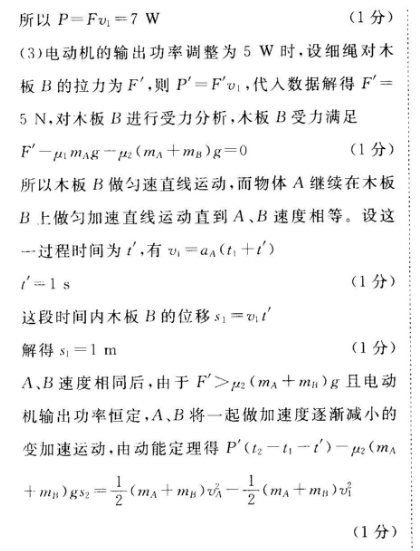 所以 P=Fv₁=7 W (1 分)
(3)电动机的输出功率调整为 5 W 时,设细绳对木
板 B 的拉力为 F′,则 P′=F′v₁,代入数据解得 F′=
5 N,对木板 B 进行受力分析,木板 B 受力满足
F′-μ₁m_Ag-μ₂(m_A+m_B)g=0 (1 分)
所以木板 B 做匀速直线运动,而物体 A 继续在木板
B 上做匀加速直线运动直到 A、B 速度相等。设这
一过程时间为 t′,有 v₁=a_A(t₁+t′)
t′=1 s (1 分)
这段时间内木板 B 的位移 s₁=v₁t′
解得 s₁=1 m (1 分)
A、B 速度相同后,由于 F′>μ₂(m_A+m_B)g 且电动
机输出功率恒定,A、B 将一起做加速度逐渐减小的
变加速运动,由动能定理得 P′(t₂-t₁-t′)-μ₂(m_A
+m_B)gs₂=1/2(m_A+m_B)v_A²-1/2(m_A+m_B)v₁²
(1 分)